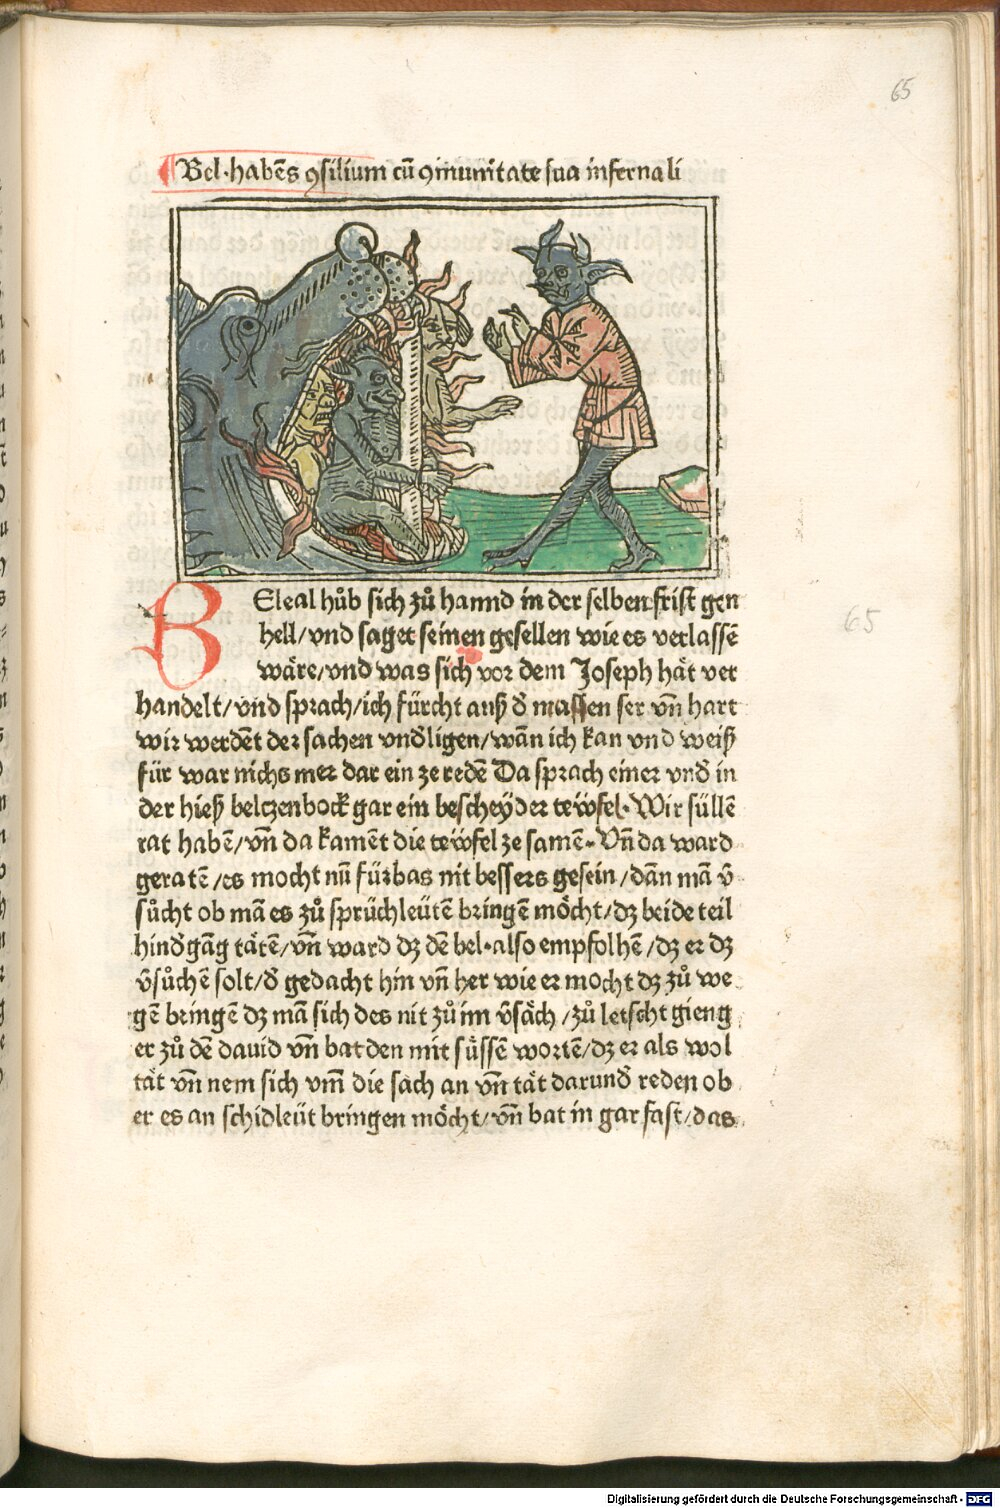 65
Bel·habēs ꝯsilium cū ꝯmunitate sua infernali
BEleal hůb sich zů hannd in der selben frist gen
hell/vnd saget seinen gesellen wie es verlassē
wäre/vnd was sich vor dem Joseph hät ver
handelt/vnd sprach/ich fürcht auß d̄ massen ser vn̄ hart
wir werdēt der sachen vnd̄ligen/wān ich kan vnd weiß
für war nichs mer dar ein ze redē Da sprach einer vnd̄ in
der hieß belczenbock gar ein bescheyder tewfel·Wir süllē
rat habē/vn̄ da kamēt die tewfel ze samē·Vn̄ da ward
geratē/es mocht nū fürbas nit bessers gesein/dān mā v̄
sůcht ob mā es zů sprüchleütē bringē möcht/dz beide teil
hind̄gāg tätē/vn̄ ward dz dē bel·also empfolhē/dz er dz
v̄sůchē solt/d̄ gedacht hin vn̄ her wie er mocht dz zů we
gē bringē dz mā sich des nit zů im v̄säch/zů letscht gieng
er zů dē dauid vn̄ bat den mit süssē wortē/dz er als wol
tät vn̄ nem sich vm̄ die sach an vn̄ tät darund̄ reden ob
er es an schidleüt bringen möcht/vn̄ bat in gar fast/das
65
Digitalisierung gefördert durch die Deutsche Forschungsgemeinschaft - DFG